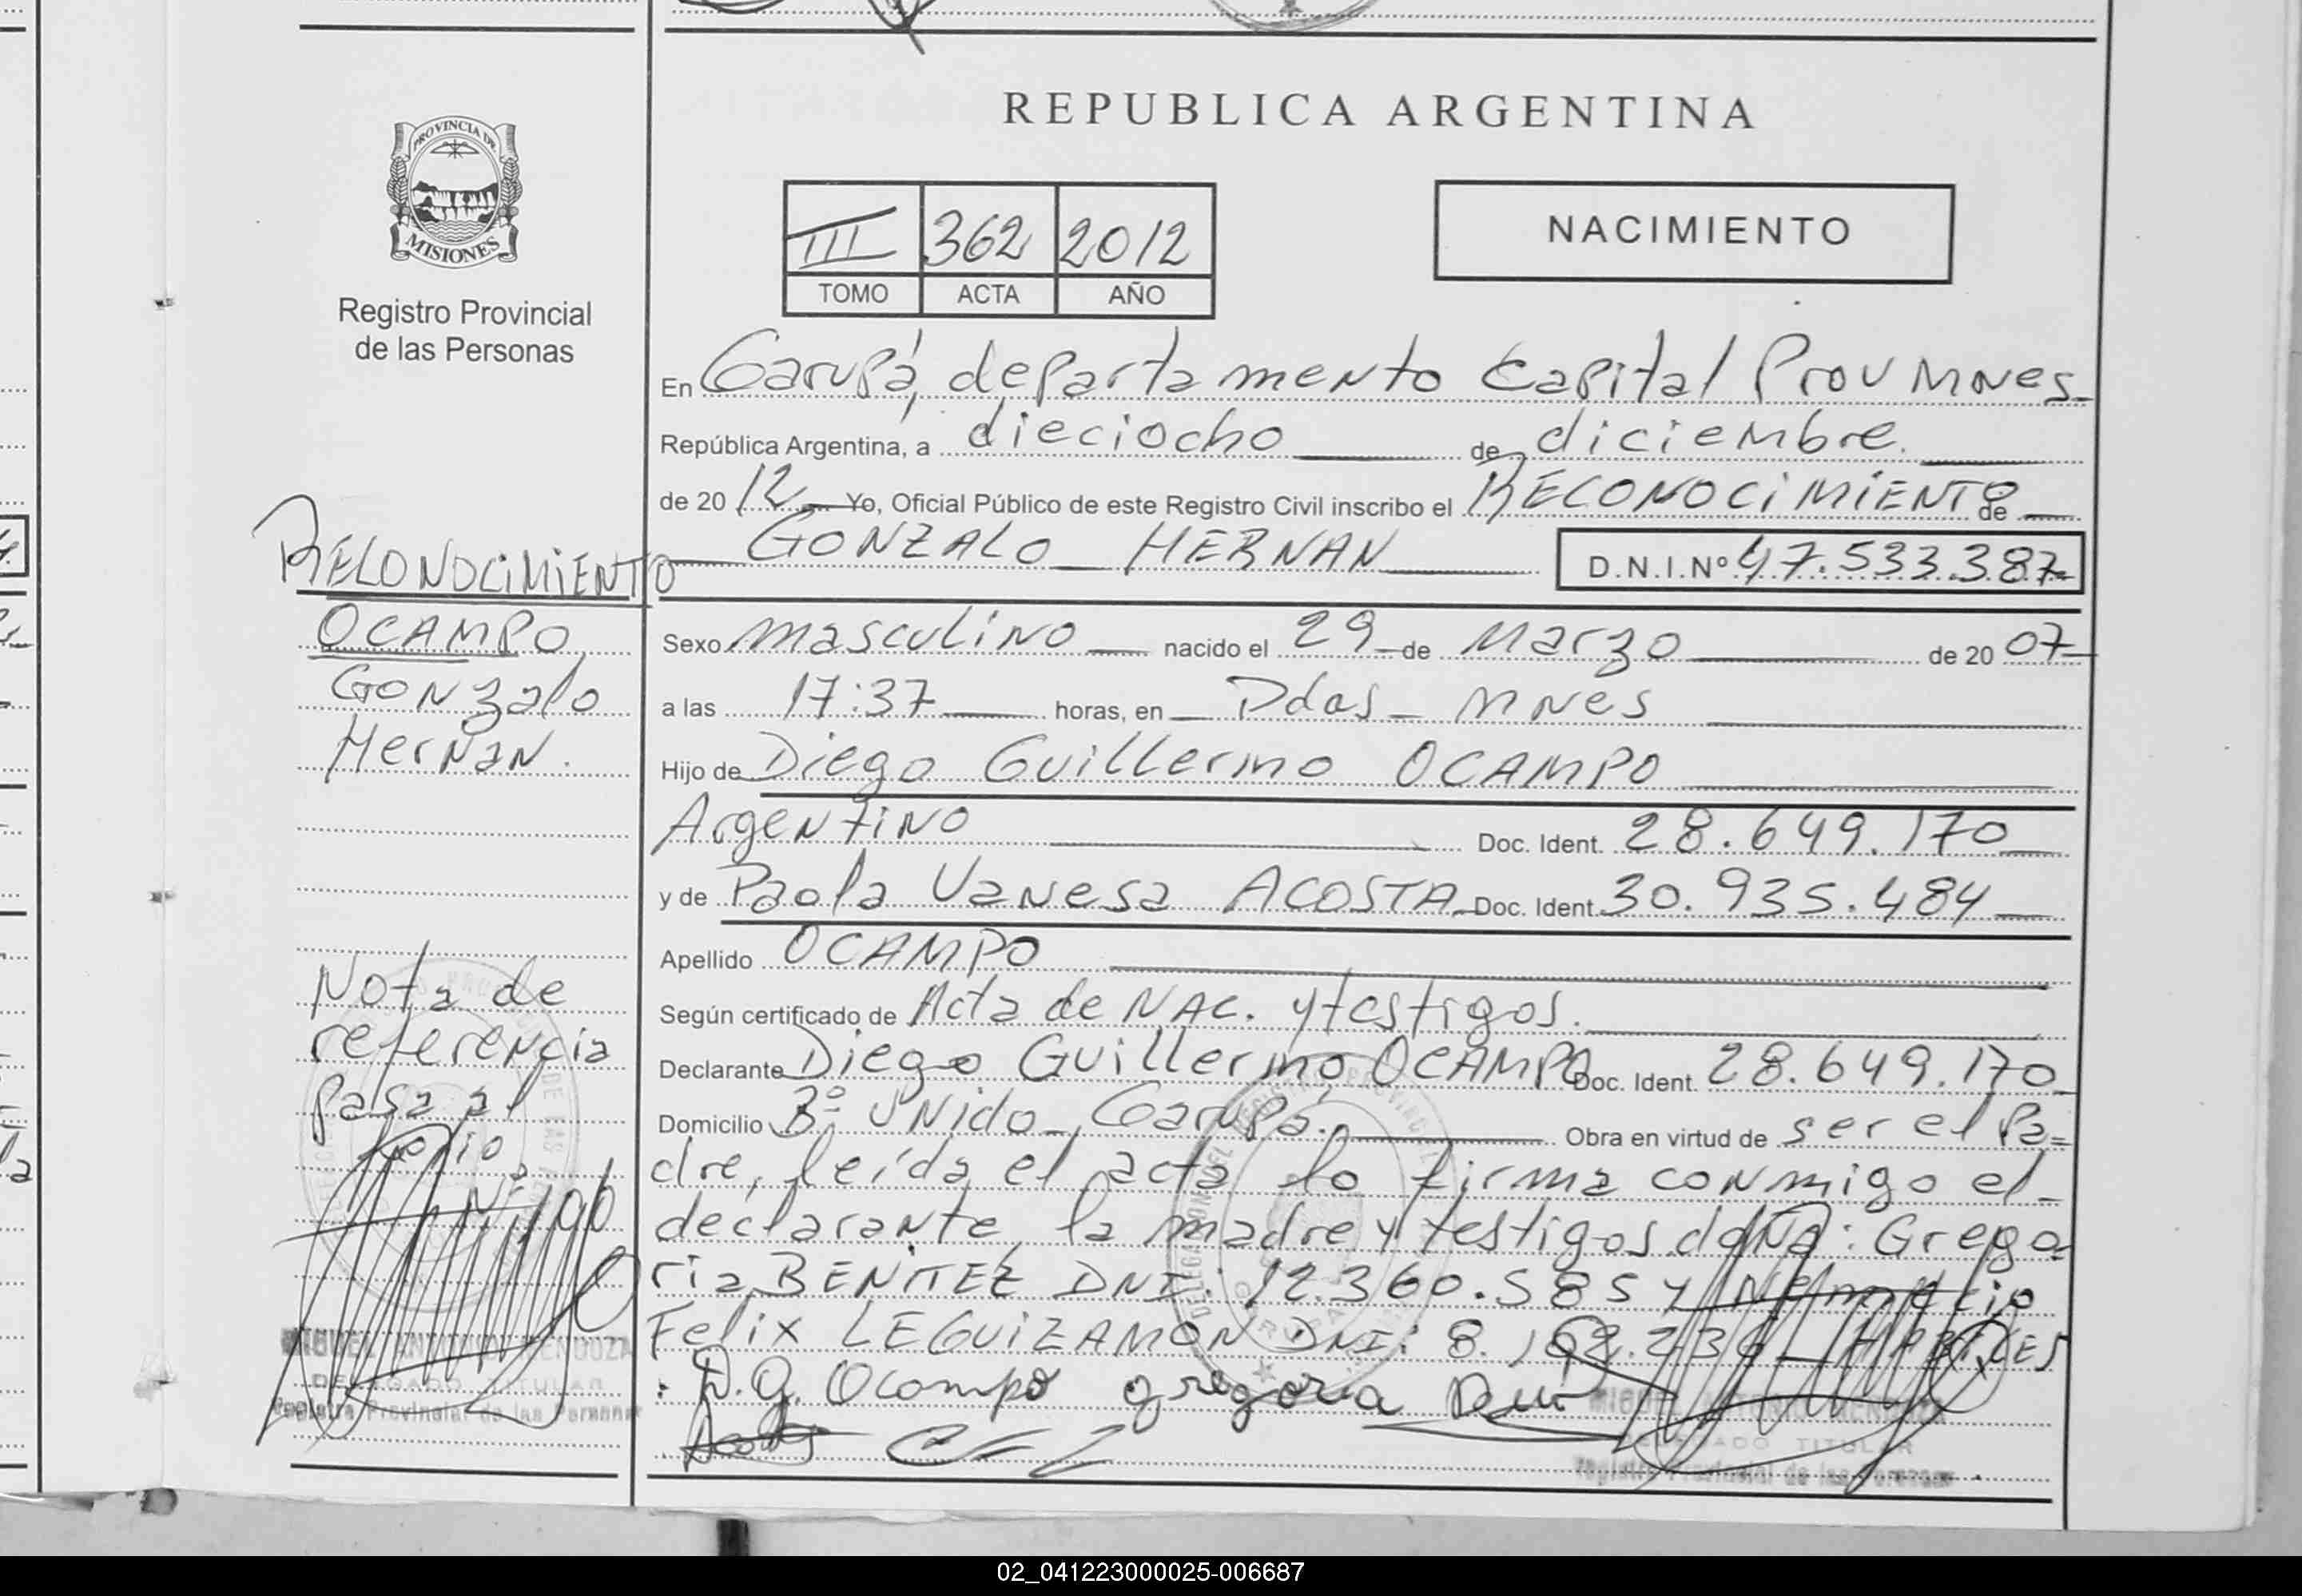 REPUBLICA ARGENTINA
PROVINCIA DE
MISIONES
Registro Provincial
de las Personas
III 362 2012
TOMO ACTA AÑO
NACIMIENTO
En Garupá, departamento Capital Prov Mnes
República Argentina, a dieciocho de diciembre
de 20 12 Yo, Oficial Público de este Registro Civil inscribo el RECONOCIMIENTO de
GONZALO HERNAN D.N.I.Nº 47.533.387
Sexo masculino nacido el 29 de Marzo de 20 07
a las 17:37 horas, en Pdas - Mnes
Hijo de Diego Guillermo OCAMPO
Argentino Doc. Ident. 28.649.170
y de Paola Vanesa ACOSTA Doc. Ident. 30.935.484
Apellido OCAMPO
Según certificado de Acta de NAC. y testigos.
Declarante Diego Guillermo OCAMPO Doc. Ident. 28.649.170
Domicilio Bº UNido - Garupá. Obra en virtud de ser el Pa=
dre, leída el acta lo firma conmigo el
declarante, la madre y testigos doÑa: Grego=
ria BENITEZ DNI: 12.360.585 y Nemecio
Felix LEGUIZAMON DNI: 8. HABILES
D.G. Ocampo gregoria
MIGUEL ANTONIO MENDOZA
DELEGADO TITULAR
Registro Provincial de las Personas
RECONOCIMIENTO
OCAMPO
Gonzalo
Hernan.
Nota de
referencia
pasa al
folio
Nº 190
MIGUEL ANTONIO MENDOZA
DELEGADO TITULAR
Registro Provincial de las Personas
02_041223000025-006687